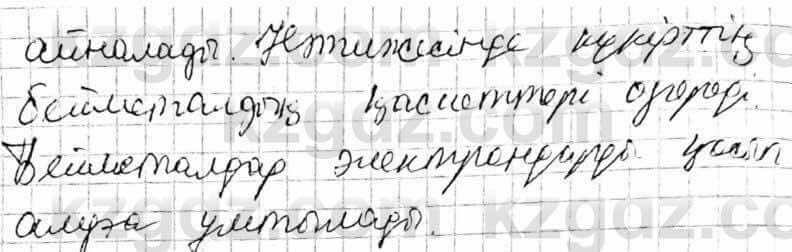 айналады. Нәтижесінде күкірттің
бейметалдық қасиеттері өзгереді.
Бейметалдар электрондарды қосып
алуға ұмтылады.